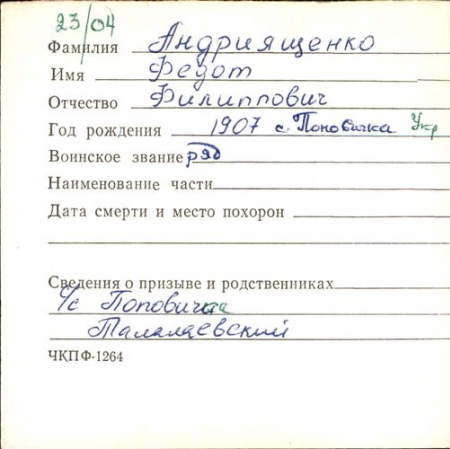 23/04
Фамилия Андриященко
Имя Федот
Отчество Филиппович
Год рождения 1907 с. Поповичка Укр
Воинское звание ряд
Наименование части
Дата смерти и место похорон
Сведения о призыве и родственниках
с/с Поповичка
Талалаевский
ЧКПФ-1264